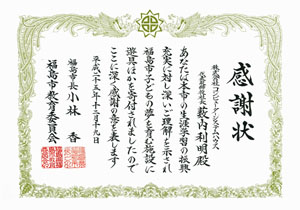 感謝状
株式会社コンピュータシステムハウス
代表取締役社長 藪内利明殿
あなたは本市の生涯学習の振興
充実に対し深いご理解を示され
福島市子どもの夢を育む施設に
遊具ほかを寄付されましたので
ここに深く感謝の意を表します
平成二十五年十二月十九日
福島市長 小林 香
福島市教育委員会